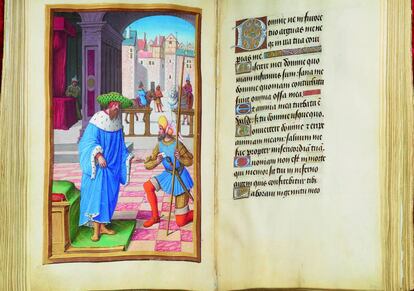 Domine ne in furore
tuo arguas me neq
in ira tua cor
ripias me.
Miserere mei domine quo
niam infirmus sum: sana me
domine quoniam conturbata sunt
omnia ossa mea.
Et anima mea turbata est
valde: sed tu domine usquequo.
Convertere domine & eripe
animam meam: salvum me
fac propter misericordiam tuã.
Quoniam non est in morte
qui memor sit tui: in inferno
autem quis confitebitur tibi
Laboravi in gemitu meo